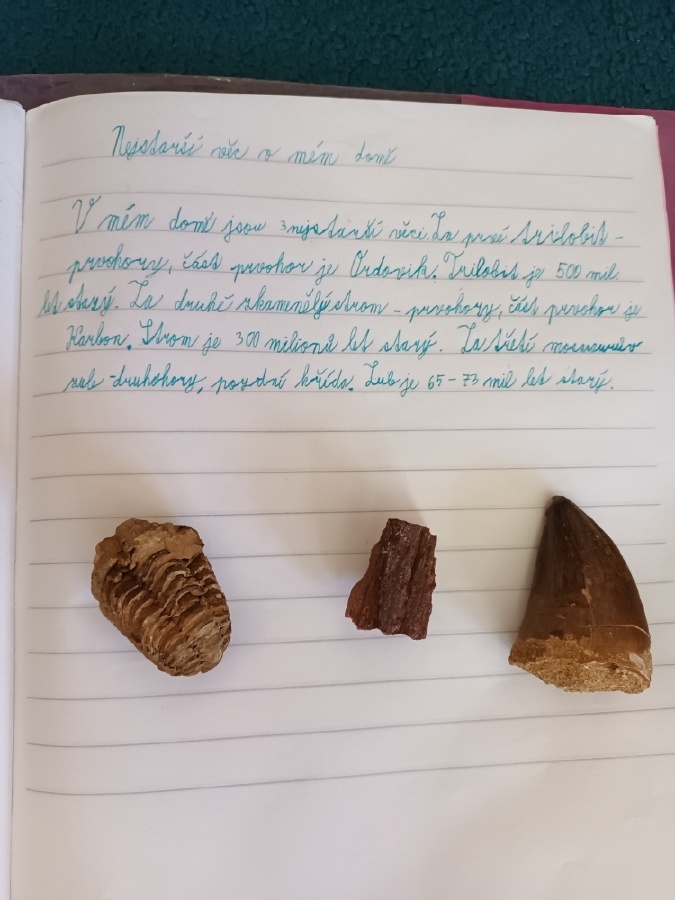 Nejstarší věc v mém domě
V mém domě jsou 3 nejstarší věci. Za prvé trilobit -
prvohory, část prvohor je Ordovik. Trilobit je 500 mil
let starý. Za druhé zkamenělý strom - prvohory, část prvohor je
Karbon. Strom je 300 milionů let starý. Za třetí
zub - druhohory, pozdní křída. Zub je 65 - 73 mil let starý.